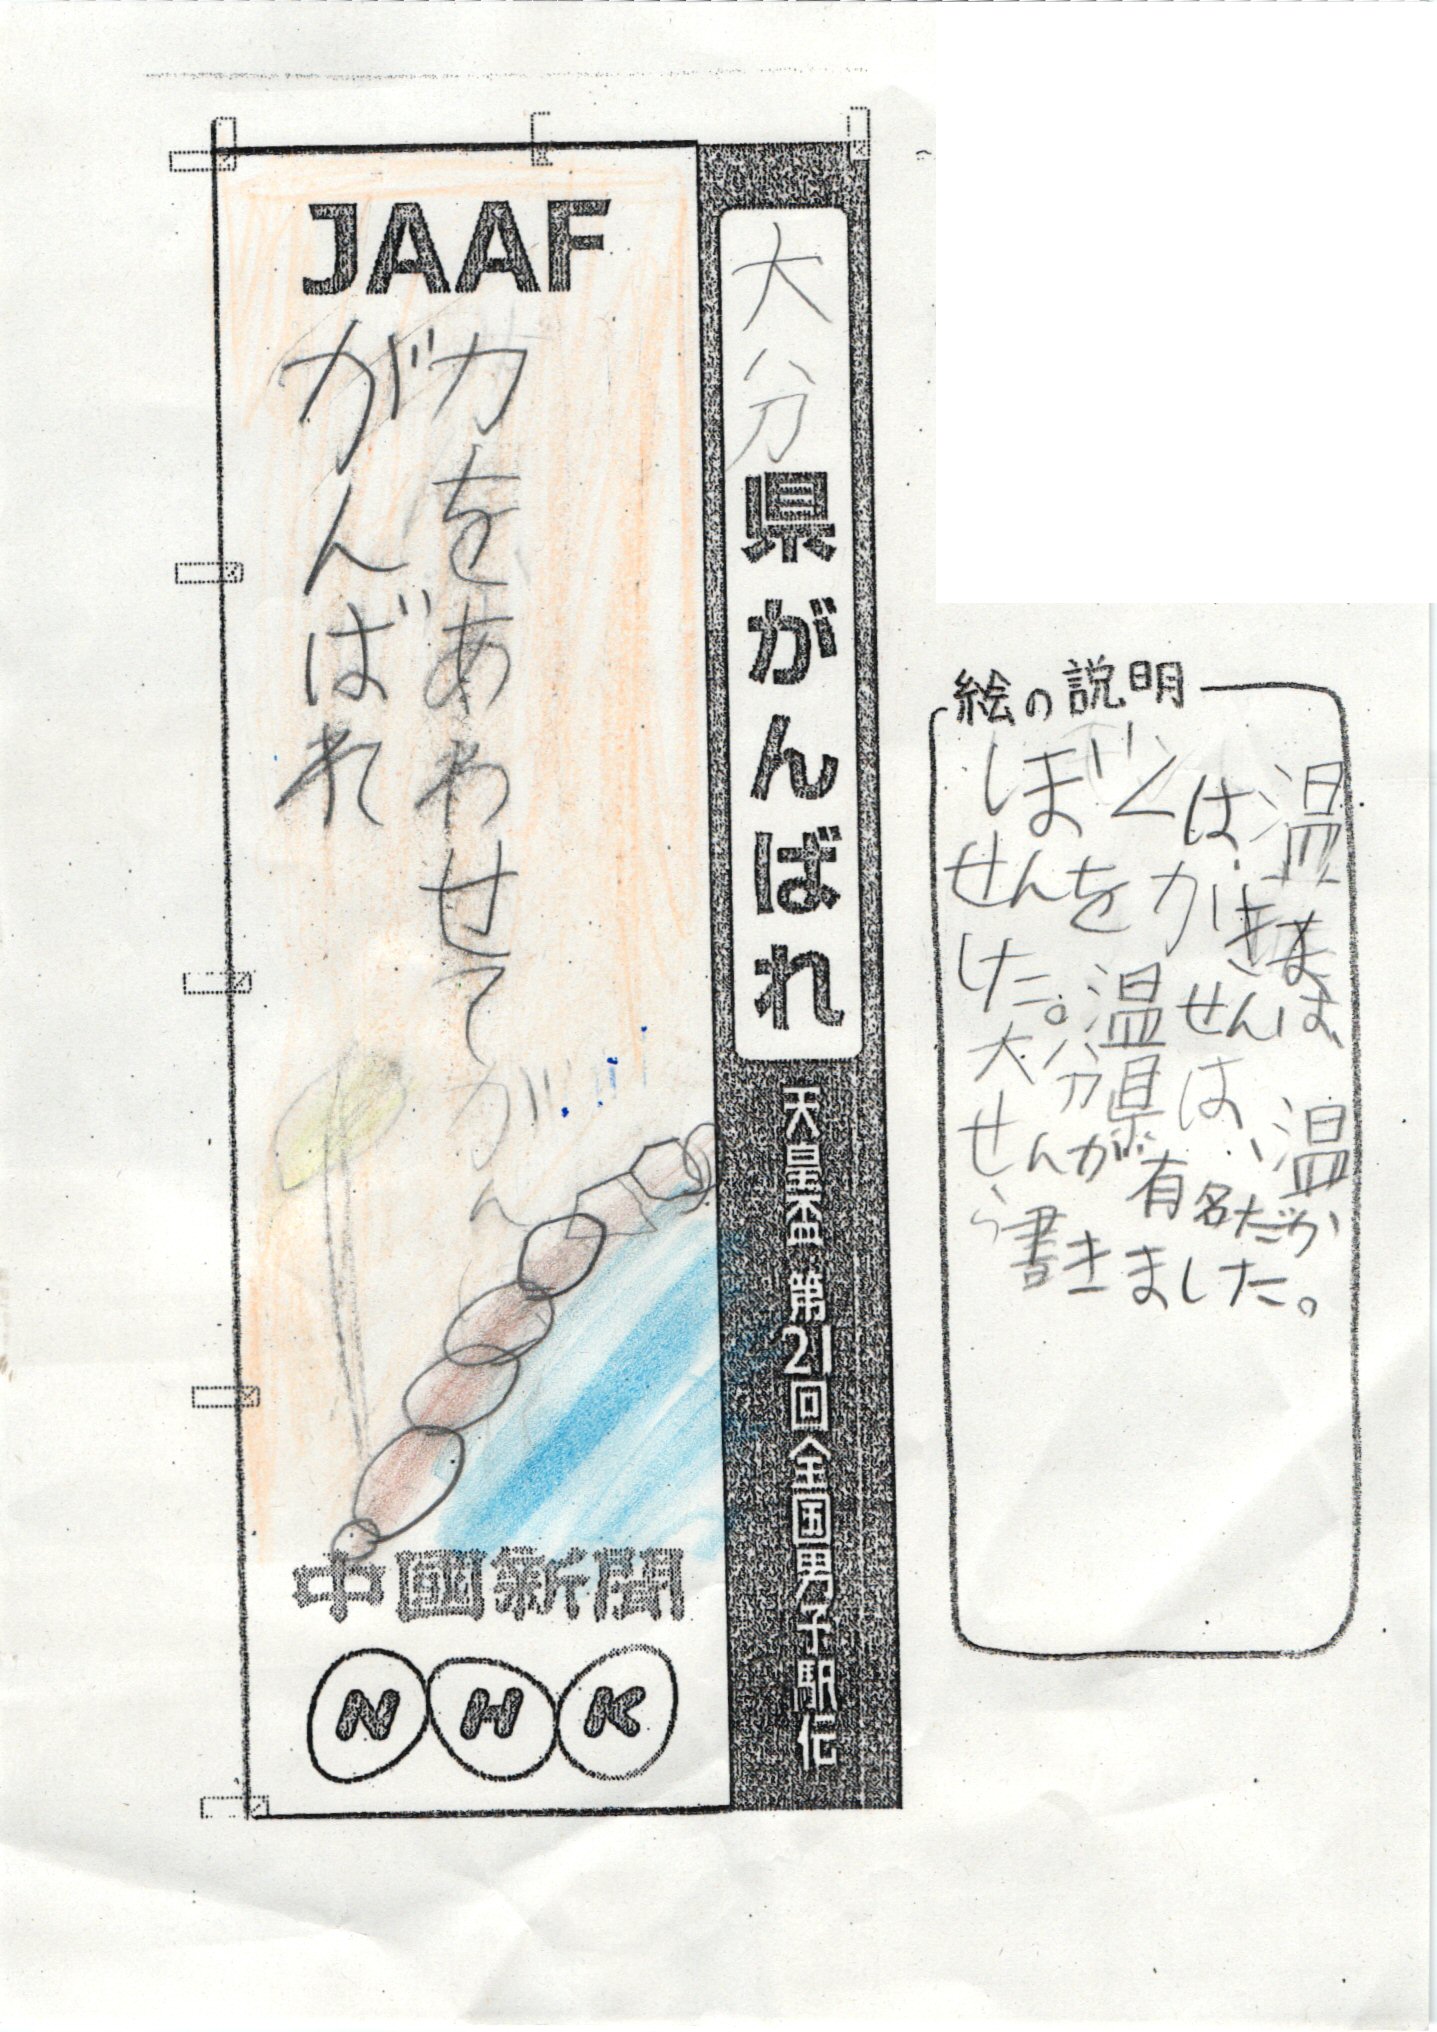 JAAF
力をあわせて
がんばれ
がん
中國新聞
NHK
大分県がんばれ
天皇盃 第21回全国男子駅伝
絵の説明
ぼくは、温
せんをかきま
した。温せんは、
大分県は、温
せんが有名だか
ら書きました。